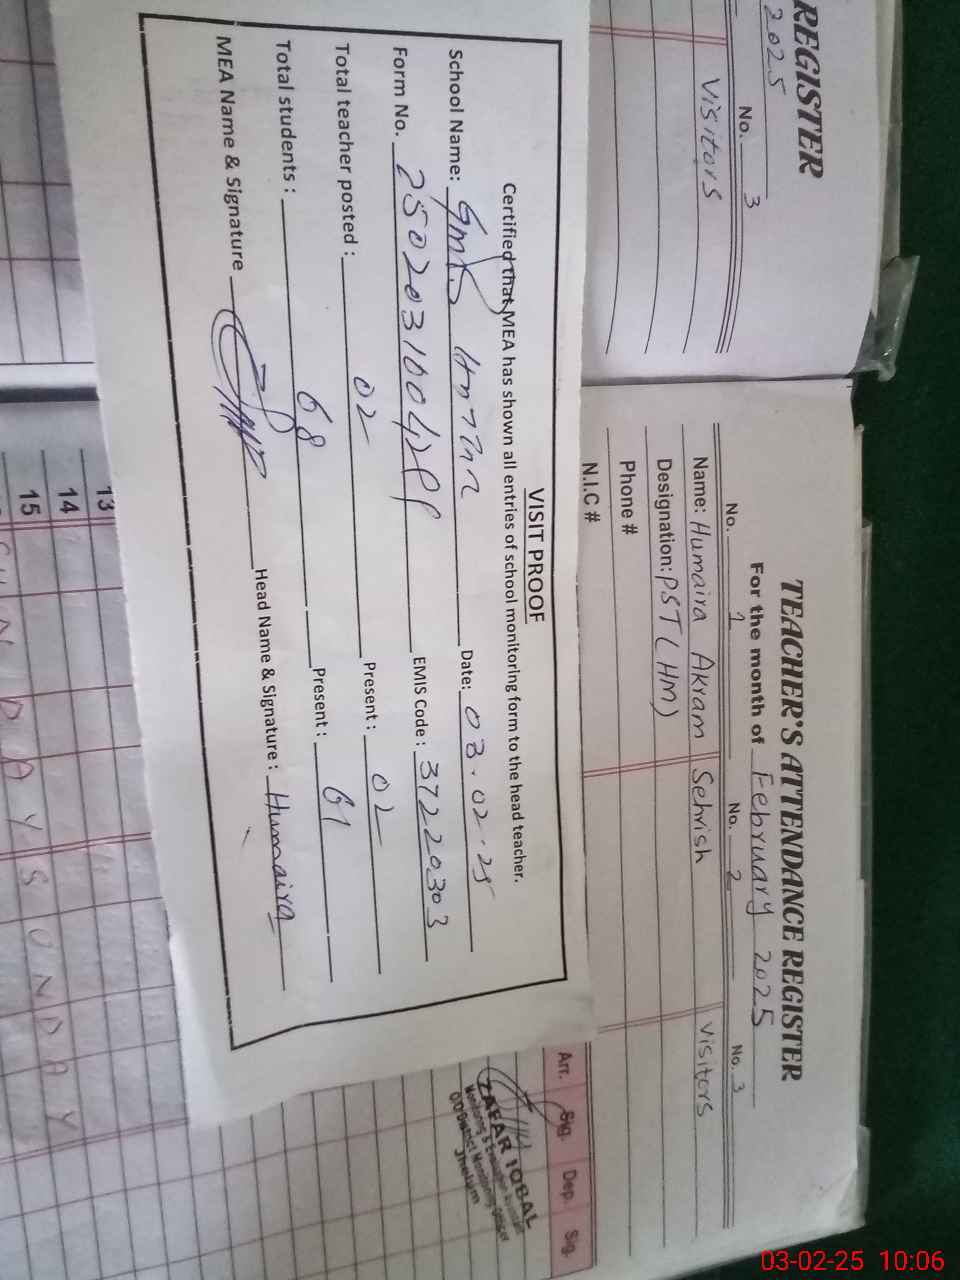 REGISTER
2025
No. 3
Visitors
TEACHER'S ATTENDANCE REGISTER
For the month of February 2025
No. 1 No. 2 No. 3
Name: Humaira Akram Sehrish Visitors
Designation: PST (HM)
Phone #
N.I.C #
VISIT PROOF
Certified that MEA has shown all entries of school monitoring form to the head teacher.
School Name: Date: 03.02.25
Form No. EMIS Code: 37220303
Total teacher posted: 02 Present: 02
Total students: 68 Present: 61
MEA Name & Signature Head Name & Signature: Humaira
Arr. Sig. Dep. Sig.
ZAFAR IQBAL
Monitoring & Evaluation Assistant
O/O District Monitoring Officer
Jhelum
13
14
15 SUNDAY SUNDAY
03-02-25 10:06